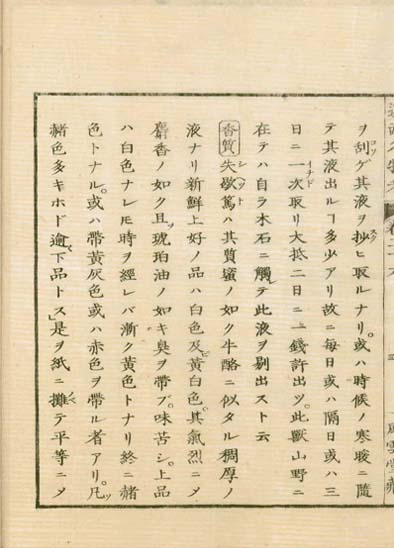 ヲ刮ゲ其液ヲ抄ヒ取ルナリ。或ハ時候ノ寒暖ニ隨
テ其液出ルヿ多少アリ故ニ毎日或ハ隔日或ハ三
日ニ一次取リ大抵二日ニ一錢許出ヅ。此獸山野ニ
在テハ自ラ木石ニ觸レテ此液ヲ剔出スト云
香質 失歇篤ハ其質蜜ノ如ク牛酪ニ似タル稠厚ノ
液ナリ新鮮上好ノ品ハ白色及ビ黄白色其氣烈ニメ
麝香ノ如ク且ツ琥珀油ノ如キ臭ヲ帶ブ。味苦シ。上品
ハ白色ナレ𪜈時ヲ經レバ漸ク黄色トナリ終ニ赭
色トナル。或ハ帶黄灰色或ハ赤色ヲ帶ル者アリ。凡ソ
赭色多キホド逾下品トス」是ヲ紙ニ攤ベテ平等ニメ